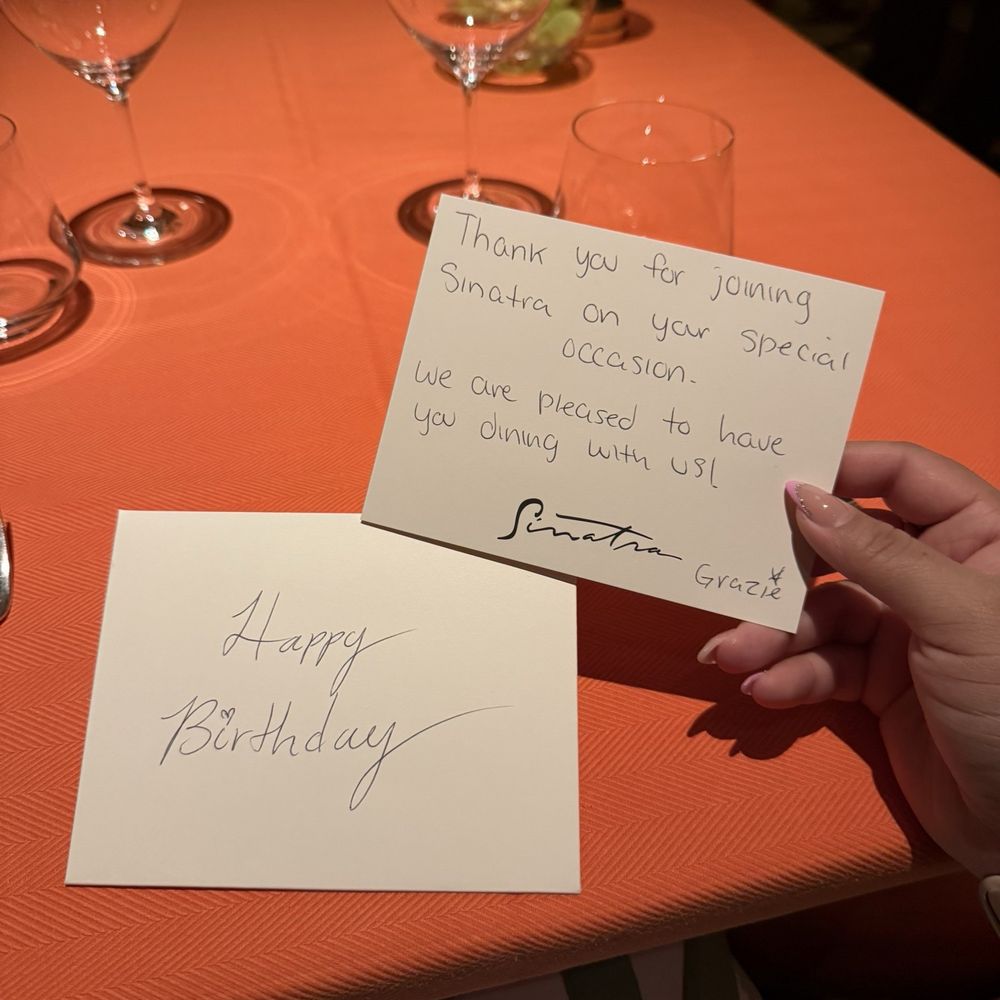 Thank you for joining
Sinatra on your special
occasion.
We are pleased to have
you dining with us!
Sinatra
Grazie
Happy
Birthday